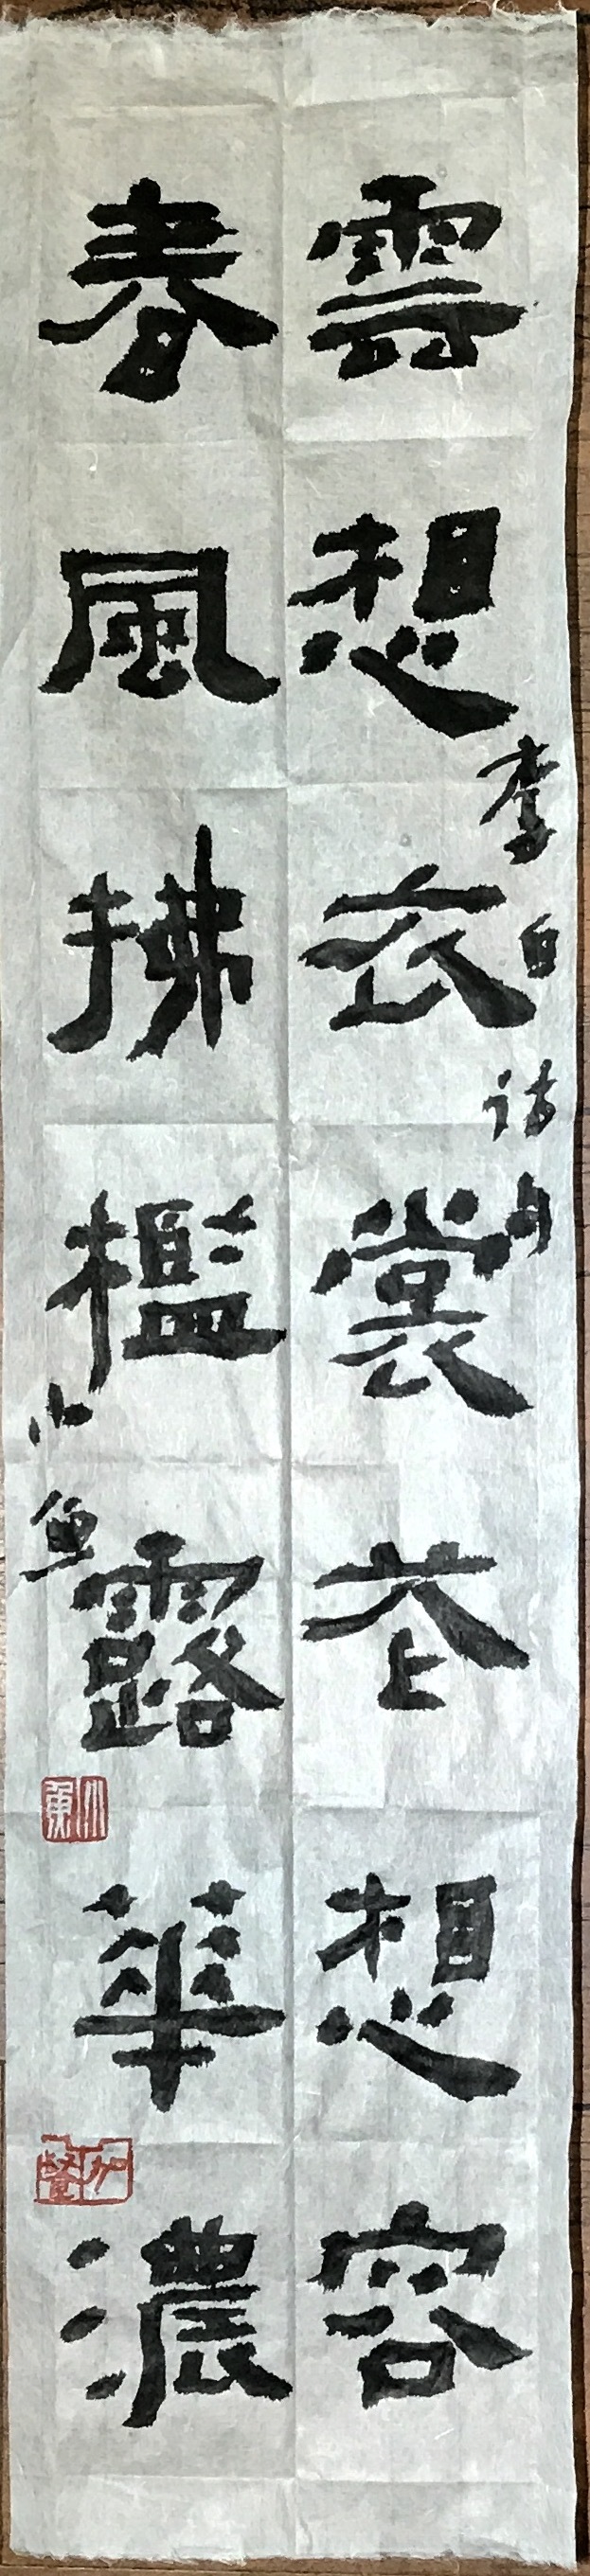 雲想衣裳花想容
李白诗句
春風拂檻露華濃
小鱼
小魚